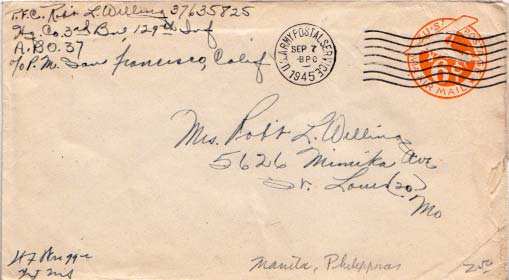 P.F.C. Robt L. Welling 37635825
Hq. Co. 3rd Bn. 129th Inf
A.P.O. 37
c/o P.M. San Francisco, Calif
U.S. ARMY POSTAL SERVICE
SEP 7
BPO
1945
U.S. POSTAGE
6¢
VIA AIR MAIL
Mrs. Robt L. Welling
5626 Mimika Ave
St. Louis (20)
Mo
Manila, Philippines
200